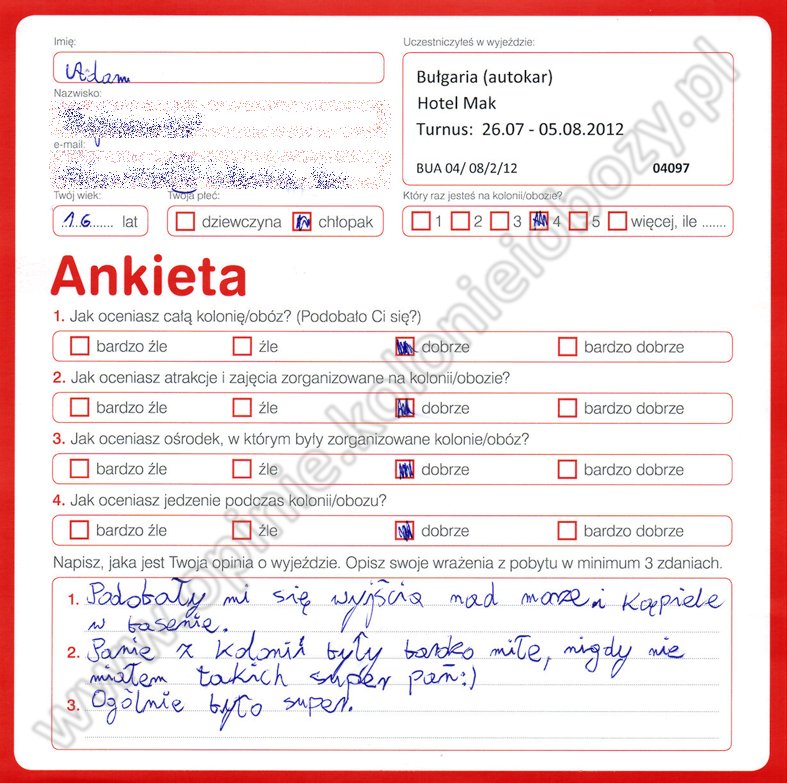 Imię:
Adam
Uczestniczyłeś w wyjeździe:
Bułgaria (autokar)
Hotel Mak
Turnus: 26.07 - 05.08.2012
BUA 04/ 08/2/12 04097
Nazwisko:
e-mail:
Twój wiek:
16 lat
Twoja płeć:
dziewczyna chłopak
Który raz jesteś na kolonii/obozie?
1 2 3 4 5 więcej, ile .......
Ankieta
1. Jak oceniasz całą kolonię/obóz? (Podobało Ci się?)
bardzo źle źle dobrze bardzo dobrze
2. Jak oceniasz atrakcje i zajęcia zorganizowane na kolonii/obozie?
bardzo źle źle dobrze bardzo dobrze
3. Jak oceniasz ośrodek, w którym były zorganizowane kolonie/obóz?
bardzo źle źle dobrze bardzo dobrze
4. Jak oceniasz jedzenie podczas kolonii/obozu?
bardzo źle źle dobrze bardzo dobrze
Napisz, jaka jest Twoja opinia o wyjeździe. Opisz swoje wrażenia z pobytu w minimum 3 zdaniach.
1. Podobały mi się wyjścia nad morze i kąpiele
w basenie.
2. Panie z kolonii były bardzo miłe, nigdy nie
miałem takich super pań:)
3. Ogólnie było super.
www.opinie.kolonieiobozy.pl